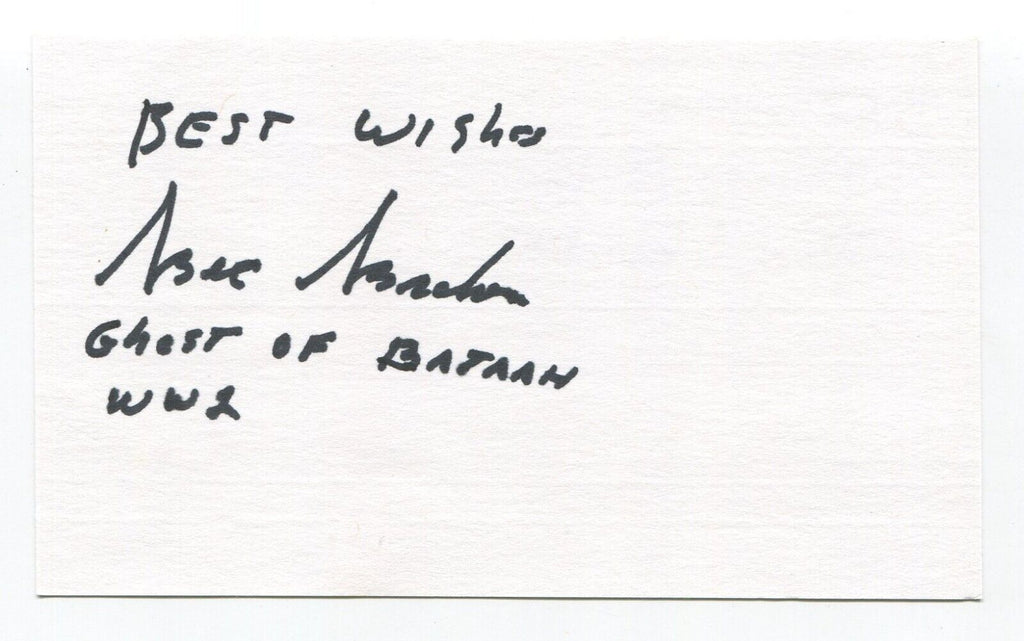 BEST WIShes
Abe Abraham
GhOST OF BATAAN
WW2